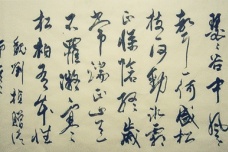 瑟々谷中風々
聲一何盛松
枝一何勁冰霜
正慘悽終歲
常端正豈
不罹凝寒
松柏有本性
魏劉楨贈從